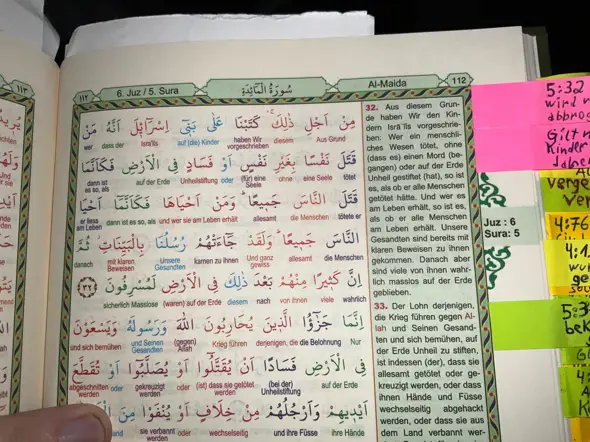 ١١٢
6. Juz / 5. Sura
سُورَةُ الْمَائِدَةِ
Al-Maida
112
مِنْ اَجْلِ ذٰلِكَ كَتَبْنَا عَلٰى بَنٖٓى اِسْرَائٖلَ اَنَّهُ مَنْ
wer dass der Isrāʾīls auf (die) Kinder haben Wir vorgeschrieben diesem Aus Grund
قَتَلَ نَفْسًا بِغَيْرِ نَفْسٍ اَوْ فَسَادٍ فِى الْاَرْضِ فَكَاَنَّمَا
dann ist es so, als auf der Erde Unheilstiftung oder (für) eine Seele ohne eine Seele tötet
قَتَلَ النَّاسَ جَمٖيعًا وَمَنْ اَحْيَاهَا فَكَاَنَّمَا اَحْيَا
er liess am Leben dann ist es so, als und wer sie am Leben erhält allesamt die Menschen tötete er
النَّاسَ جَمٖيعًا وَلَقَدْ جَاءَتْهُمْ رُسُلُنَا بِالْبَيِّنَاتِ ثُمَّ
danach mit klaren Beweisen Unsere Gesandten kamen zu ihnen Und ganz gewiss allesamt die Menschen
اِنَّ كَثٖيرًا مِنْهُمْ بَعْدَ ذٰلِكَ فِى الْاَرْضِ لَمُسْرِفُونَ ﴿٣٢﴾
sicherlich Masslose (waren) auf der Erde diesem nach von ihnen viele wahrlich
اِنَّمَا جَزٰٓؤُا الَّذٖينَ يُحَارِبُونَ اللّٰهَ وَرَسُولَهُ وَيَسْعَوْنَ
und sich bemühen und Seinen Gesandten (gegen) Allah Krieg führen derjenigen, die die Belohnung Nur
فِى الْاَرْضِ فَسَادًا اَنْ يُقَتَّلُٓوا اَوْ يُصَلَّبُٓوا اَوْ تُقَطَّعَ
abgeschnitten werden oder gekreuzigt werden oder (ist) dass sie getötet werden (bei der) Unheilstiftung auf der Erde
اَيْدٖيهِمْ وَاَرْجُلُهُمْ مِنْ خِلَافٍ اَوْ يُنْفَوْا مِنَ
und sie verbannt werden oder wechselseitig und ihre Füsse ihre Hände
32. Aus diesem Grun-
de haben Wir den Kin-
dern Isrāʾīls vorgeschrie-
ben: Wer ein menschli-
ches Wesen tötet, ohne
(dass es) einen Mord (be-
gangen) oder auf der Erde
Unheil gestiftet (hat), so ist
es, als ob er alle Menschen
getötet hätte. Und wer es
am Leben erhält, so ist es,
als ob er alle Menschen
am Leben erhält. Unsere
Gesandten sind bereits mit
klaren Beweisen zu ihnen
gekommen. Danach aber
sind viele von ihnen wahr-
lich masslos auf der Erde
geblieben.
33. Der Lohn derjenigen,
die Krieg führen gegen Al-
lah und Seinen Gesand-
ten und sich bemühen, auf
der Erde Unheil zu stiften,
ist indessen (der), dass sie
allesamt getötet oder ge-
kreuzigt werden, oder dass
ihnen Hände und Füsse
wechselseitig abgehackt
werden, oder dass sie aus
dem Land verbannt wer-
Juz : 6
Sura: 5
5:32
wird
abbro
Gilt n
Kinder
4:76